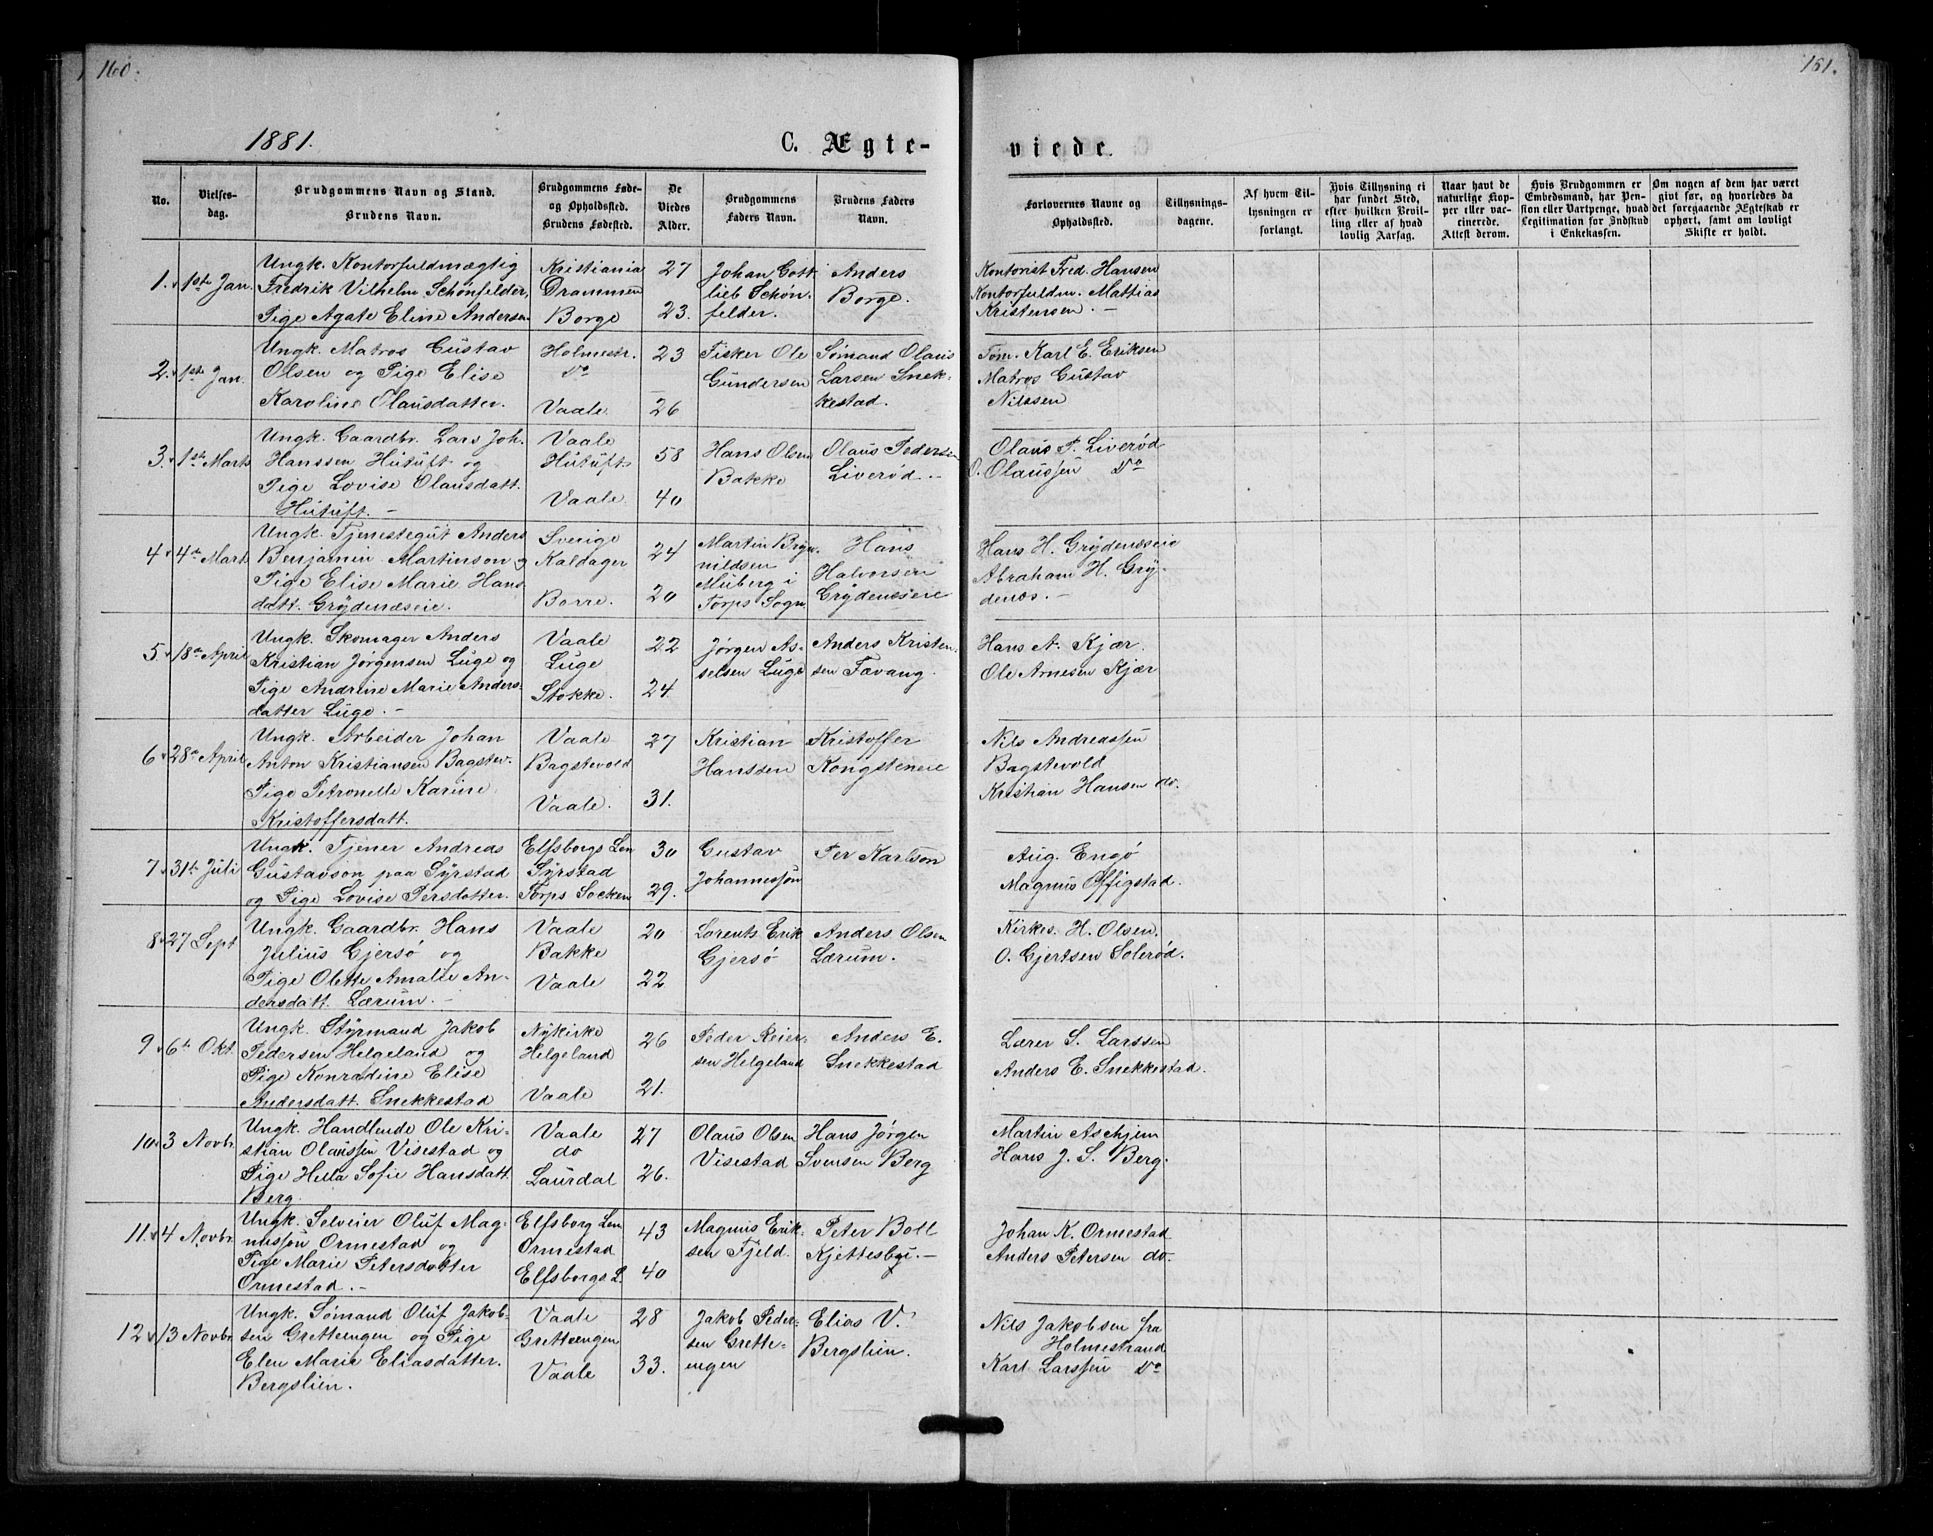 160.
161.
1881.
C. Ægte-
viede.
No.
Vielses-
dag.
Brudgommens Navn og Stand.
Brudens Navn.
Brudgommens Føde-
og Opholdssted.
Brudens Fødested.
De
Viedes
Alder.
Brudgommens
Faders Navn.
Brudens Faders
Navn.
Forlovernes Navne og
Opholdssted.
Tillysnings-
dagene.
Af hvem Til-
lysningen er
forlangt.
Hvis Tillysning ei
har fundet Sted,
efter hvilken Bevil-
ling eller af hvad
lovlig Aarsag.
Naar havt de
naturlige Kop-
per eller vac-
cinerede.
Attest derom.
Hvis Brudgommen er
Embedsmand, har Pen-
sion eller Vartpenge, hvad
Legitimation for Indskud
i Enkekassen.
Om nogen af dem har været
givt før, og hvorledes da
det foregaaende Ægteskab er
ophørt, samt om lovligt
Skifte er holdt.
1.
1ste Jan.
Ungk. Kontorfuldmægtig
Fredrik Vilhelm Schönfelder,
Pige Agate Eline Andersen
Kristiania
Drammen
Borge
27
23.
Johan Gott-
lieb Schön-
felder.
Anders
Borge.
Kontorist Fred. Hansen
Kontorfuldm. Mattias
Kristensen. -
2.
1ste Jan.
Ungk. Matros Gustav
Olsen og Pige Elise
Karoline Olausdatter.
Holmestr.
do
Vaale
23
26
Fisker Ole
Gundersen
Sømand Olaus
Larsen Snek-
kestad.
Tøm. Karl E. Eriksen
Matros Gustav
Nilssen
3.
1ste Marts
Ungk. Gaardbr. Lars Joh.
Hanssen Hutuft og
Pige Lovise Olausdatt.
Hutuft. -
Vaale
Hutuft
Vaale
58
40
Hans Olsen
Bakke
Olaus Pedersen
Liverød. -
Olaus P. Liverød
O. Olaussen do
4
4de Marts
Ungk. Tjenestegut Anders
Benjamin Martinson og
Pige Elise Marie Hans
datt. Grydenæseie.
Sverige
Kaldager
Borre.
24
20
Martin Bryn-
nildsen
Muberg i
Torps Sogn
Hans
Halvorsen
Grydenæseie
Hans H. Grydenæseie
Abraham H. Gry-
denæs. -
5
18de April
Ungk. Skomager Anders
Kristian Jørgensen Luge og
Pige Andrine Marie Anders-
datter Luge. -
Vaale
Luge
Stokke.
22
24.
Jørgen As-
selsen Luge
Anders Kristen-
sen Fævang.
Hans A. Kjær.
Ole Arnesen Kjær
6
28de April
Ungk. Arbeider Johan
Anton Kristiansen Bagstev-
Pige Petronelle Karine
Kristoffersdatt.
Vaale
Bagstevold
Vaale.
27
31.
Kristian
Hanssen
Kristoffer
Kongsteneie
Nils Andreassen
Bagstevold
Kristian Hansen do.
7
31te Juli
Ungk. Tjener Andreas
Gustavson paa Syrstad
og Pige Lovise Persdatter.
Elfsborgs Len
Syrstad
Torps Socken
30
29.
Gustav
Johannesson
Per Karlson
Aug. Engø
Magnus Offigstad.
8
27 Sept
Ungk. Gaardbr. Hans
Julius Gjersø og
Pige Olette Amalie An-
dersdatt. Lærum. -
Vaale
Bakke
Vaale
20
22
Lorents Erik
Gjersø
Anders Olsen
Lærum.
Kirkes. H. Olsen.
O. Gjertsen Solerød.
9
6te Okt.
Ungk. Styrmand Jakob
Pedersen Helgeland og
Pige Konradine Elise
Andersdatt. Snekkestad
Nykirke
Helgeland
Vaale
26
21.
Peder Reier-
sen Helgeland
Anders E.
Snekkestad
Lærer S. Larssen
Anders E. Snekkestad.
10
3 Novbr.
Ungk. Handlende Ole Kri-
stian Olaussen Visestad og
Pige Hella Sofie Hansdatt.
Berg.
Vaale
do
Laurdal
27
26.
Olaus Olsen
Visestad
Hans Jørgen
Svensen Berg
Martin Aschjem
Hans J. S. Berg.
11.
4 Novbr.
Ungk. Selveier Oluf Mag-
nusson Ormestad og
Pige Marie Petersdatter
Ormestad. -
Elfsborg Len
Ormestad
Elfsborgs L.
43
40
Magnus Erik-
sen Fjeld.
Peter Boll
Kjettesbyi. -
Johan K. Ormestad
Anders Petersen do.
12
13 Novbr.
Ungk. Sømand Oluf Jakob-
sen Gretteengen og Pige
Elen Marie Eliasdatter.
Bergslien.
Vaale
Gretteengen
Vaale
28
33.
Jakob Peder-
sen Grette-
engen
Elias V.
Bergslien.
Nils Jakobsen fra
Holmestrand
Karl Larssen do